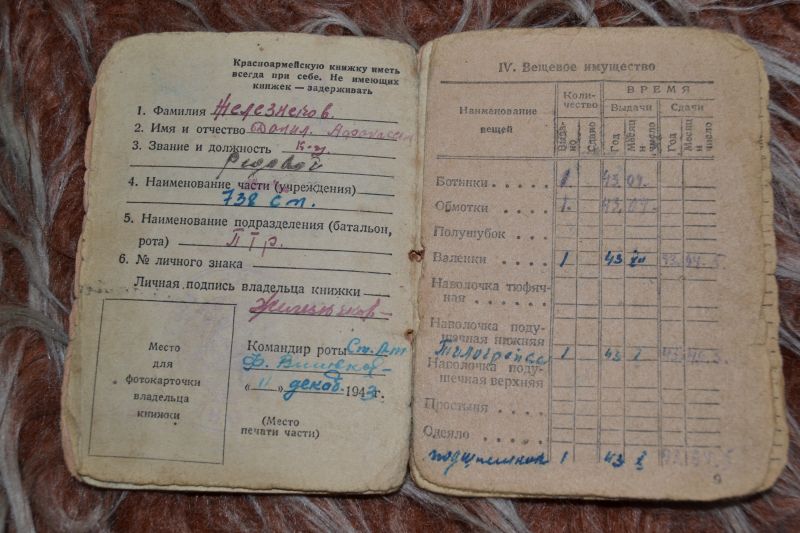 Красноармейскую книжку иметь
всегда при себе. Не имеющих
книжек — задерживать
1. Фамилия Железняков
2. Имя и отчество Данил.
3. Звание и должность к-ц
Рядовой
4. Наименование части (учреждения)
738 Сп.
5. Наименование подразделения (батальон,
рота) ПТР.
6. № личного знака
Личная подпись владельца книжки
Железняков
Место
для
фотокарточки
владельца
книжки
Командир роты Ст. л-т
„ 11 “ декаб 1943г.
(Место
печати части)
IV. Вещевое имущество
Наименование
вещей
Коли-
чество
ВРЕМЯ
Выдачи
Сдачи
Выда-
но
Сдано
Год
Месяц
и
число
Год
Месяц
и
число
Ботинки . . . . . 1. 43 04.
Обмотки . . . . . 1. 43 04.
Полушубок . .
Валенки . . . . 1 43
Наволочка тюфяч-
ная . . . . .
Наволочка поду-
шечная нижняя
Тилогрейка 1 43 X
Наволочка поду-
шечная верхняя
Простыня . . .
Одеяло . . . . .
подшлемник 1 43 X
9